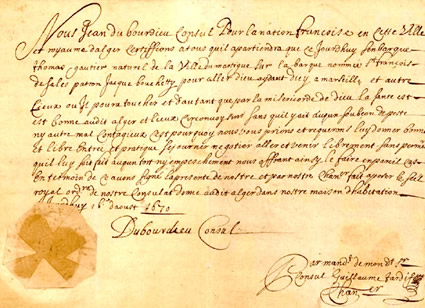 Nous Jean du bourdieu Consul Pour la nation francoise en cette Ville
et royaume dalger Certiffions a tous quil apartiendra que ce Jourdhuy sen barque
thomas gautier naturel de la Ville du martigue sur la barque nommée St françois
de sales patron Jaque bouchet pour aller dicy a marseille et autre
Lieux ou Jl poura toucher et dautant que par la misericorde de dieu la santé est
est bonne audit alger et Lieux Circonvoy sans quil y ait aucun soubson de peste
ny autre mal Contagieux Cest pourquoy nous vous prions et requerons luy donner bonne
et libre Entrée et pratique sejourner negotier aller et venir librement sans permetre
quil luy soit fait aucun tort ny empeschement nous offrant ainsy le faire en pareil cas
En temoin de ce avons signé la presente de notre et par notre Chanser fait aposer le seel
royal ord.re de notre Consulat donné audit alger dans notre maison dhabitation
Jourdhuy 16e daoust 1670
Dubourdieu Consul
Par mandt de mondt Sr
Consul Guillaume tardif
Chanser